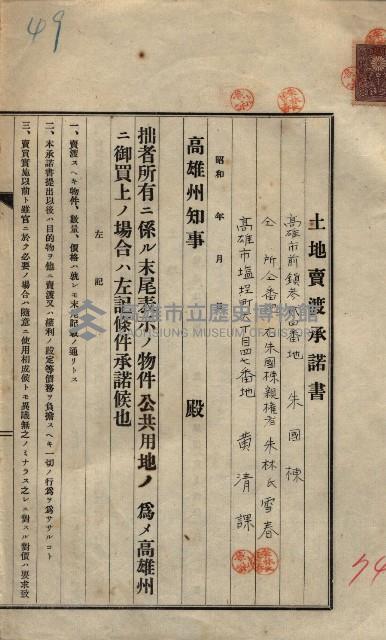 49
土地賣渡承諾書
高雄市前鎮 番地 朱國棟
仝 所仝番地 右朱國棟親權者 朱林氏雪春
高雄市塩埕町 丁目四七番地 黄清課
昭和 年 月 日
高雄州知事 殿
拙者所有ニ係ル末尾表示ノ物件公共用地ノ為メ高雄州
ニ御買上ノ場合ハ左記條件承諾候也
左記
一、賣渡スヘキ物件、數量、價格ハ就レモ末尾記載ノ通リトス
二、本承諾書提出以後ハ目的物ヲ他ニ賣渡又ハ權利ノ設定等債務ヲ負擔スヘキ一切ノ行為ヲ為ササルコト
三、賣買實施以前ト雖官ニ於テ必要ノ場合ハ隨意ニ使用相成候トモ異議無之ノミナラス之レニ對スル對價ハ要求致
高雄市立歷史博物館
KAOHSIUNG MUSEUM OF HISTORY
74